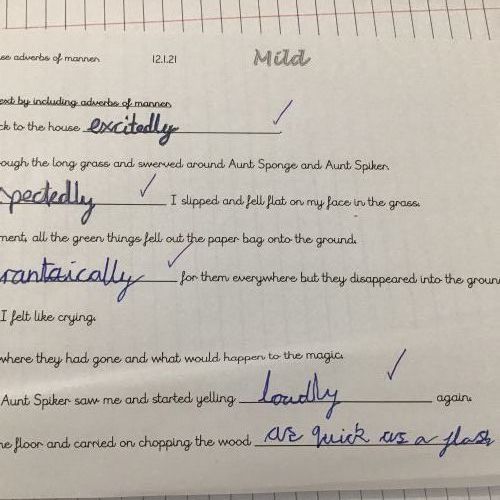 se adverbs of manner 12.1.21 Mild
ext by including adverbs of manner
ck to the house excitedly
ough the long grass and swerved around Aunt Sponge and Aunt Spiker.
pectedly I slipped and fell flat on my face in the grass.
ment, all the green things fell out the paper bag onto the ground.
rantaically for them everywhere but they disappeared into the groun
I felt like crying.
where they had gone and what would happen to the magic.
Aunt Spiker saw me and started yelling loudly again.
he floor and carried on chopping the wood as quick as a flash